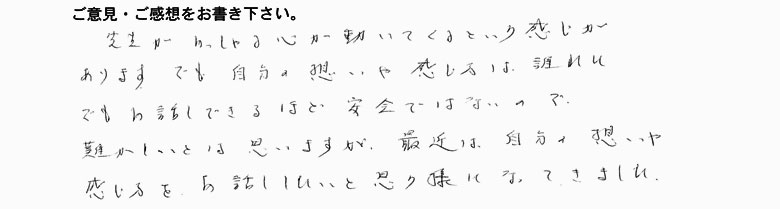 ご意見・ご感想をお書き下さい。
先生がおっしゃる心が動いてくるという感じが
あります でも 自分の想いや感じるは、誰れに
でもお話しできるほど安全ではないので、
難かしいとは思いますが、最近は、自分の想いや
感じるを、お話ししたいと思う様になってきました。